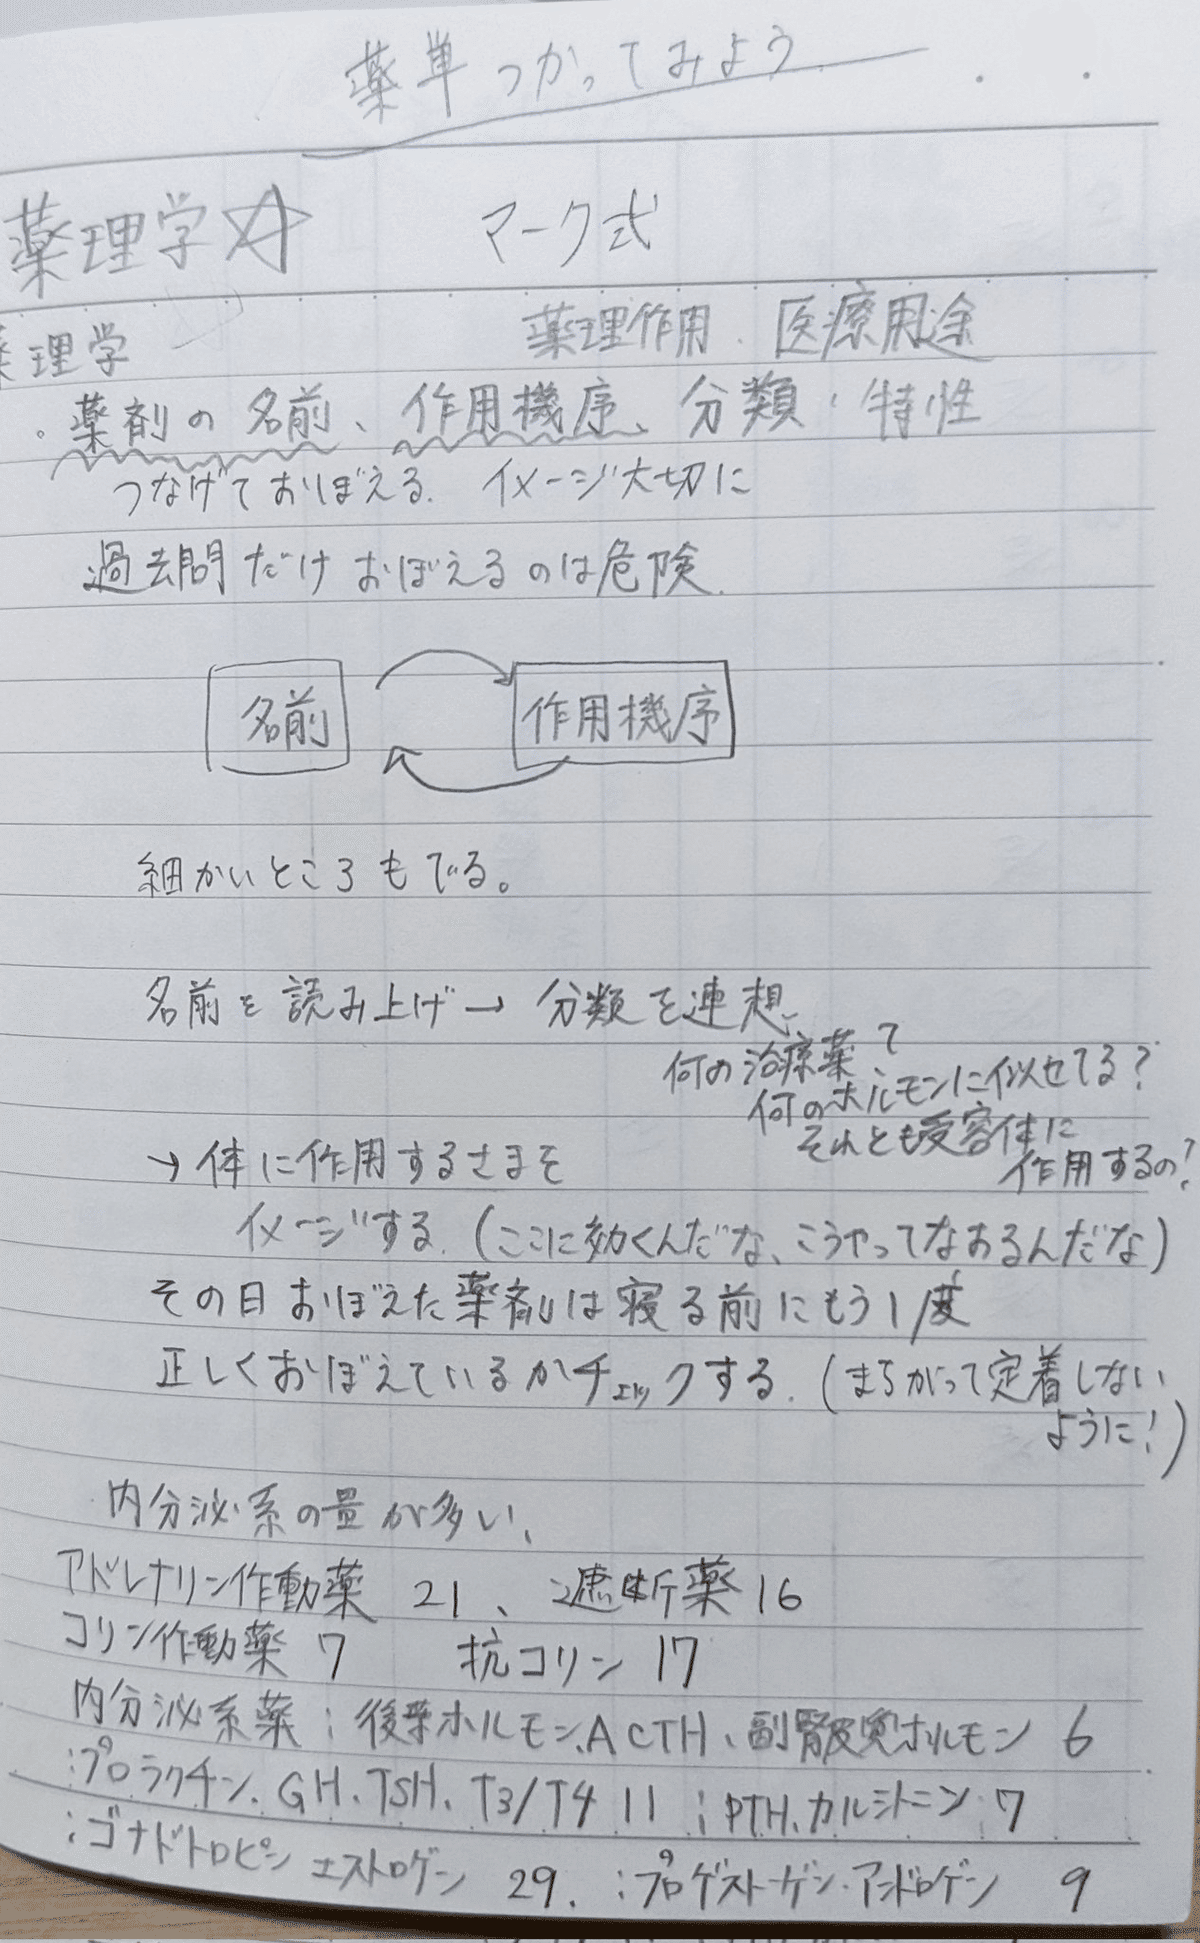 薬単つかってみよう
薬理学☆ マーク式
薬理学 薬理作用・医療用途
。薬剤の名前、作用機序、分類・特性
つなげておぼえる. イメージ大切に
過去問だけおぼえるのは危険.
名前 作用機序
細かいところもでる。
名前を読み上げ→分類を連想、
何の治療薬で
何のホルモンに似せてる?
それとも受容体に
作用するの?
→体に作用するさまを
イメージする.(ここに効くんだな、こうやってなおるんだな)
その日おぼえた薬剤は寝る前にもう1度
正しくおぼえているかチェックする.(まちがって定着しない
ように!)
内分泌系の量が多い、
アドレナリン作動薬 21、遮断薬16
コリン作動薬 7 抗コリン 17
内分泌系薬:後葉ホルモン、ACTH、副腎皮質ホルモン 6
:プロラクチン、GH、TSH、T3/T4 11 :PTH、カルシトニン 7
:ゴナドトロピン エストロゲン 29. :プロゲストーゲン・アンドロゲン 9